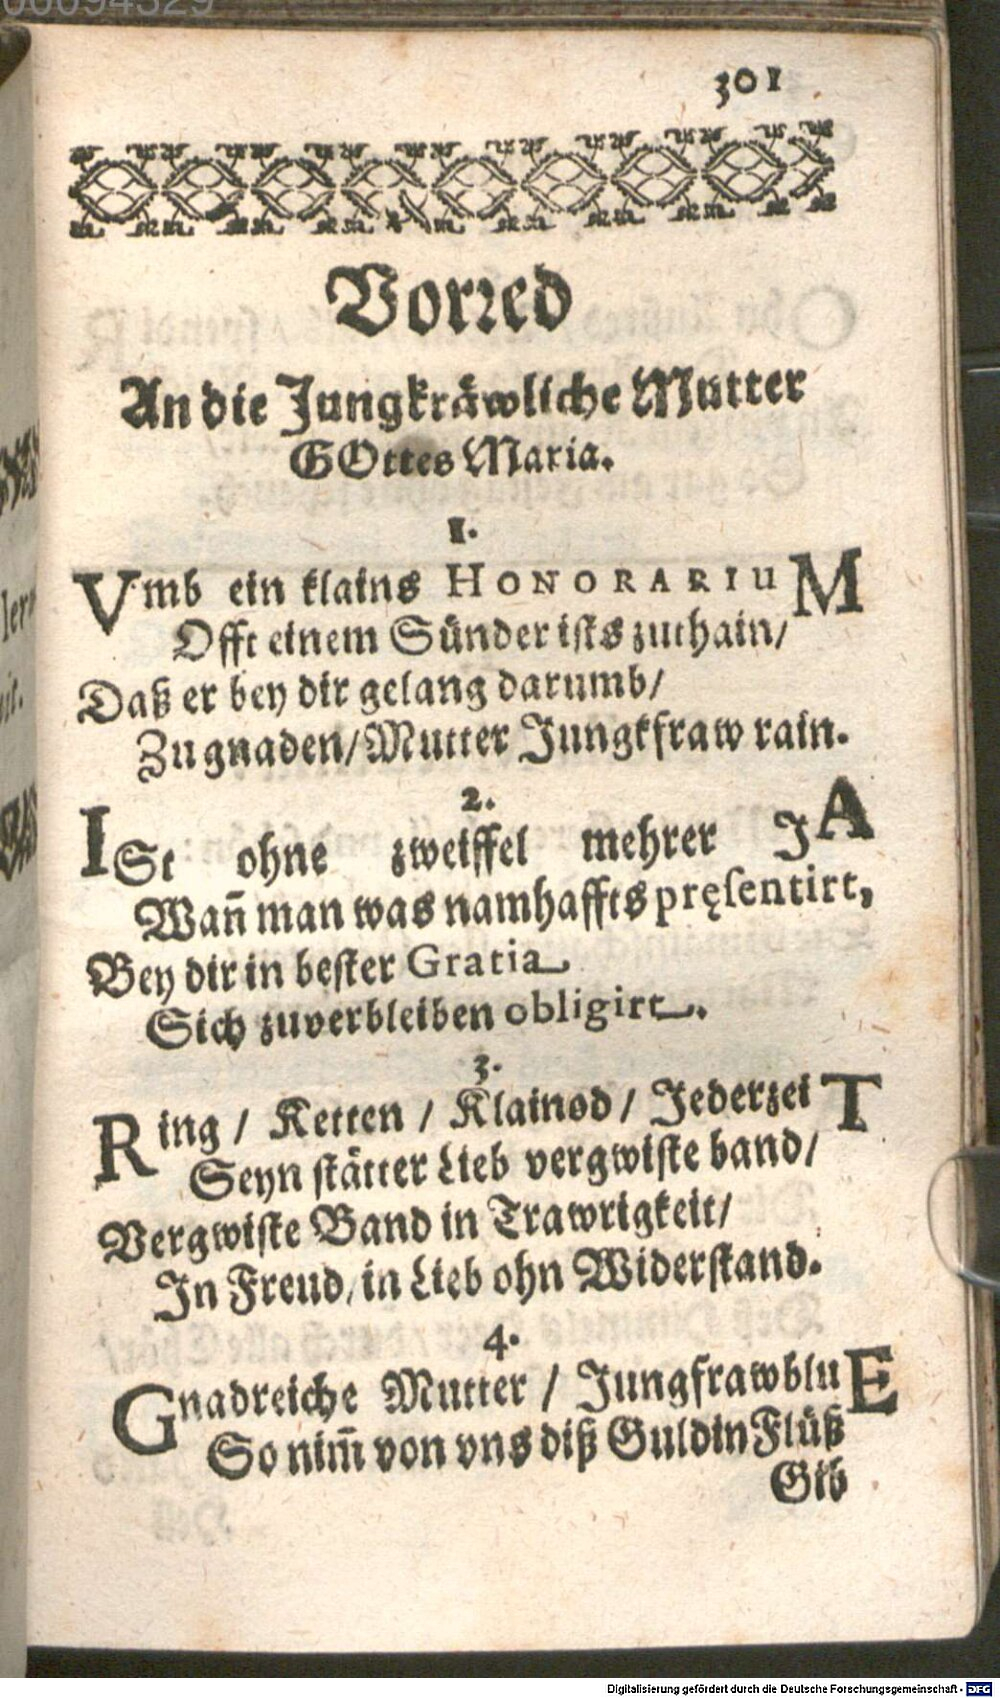 00694329
301
Vorred
An die Jungkräwliche Mutter
GOttes Maria.
1.
Vmb ein klains HONORARIUM
Offt einem Sünder ists zuthain/
Daß er bey dir gelang darumb/
Zu gnaden/ Mutter Jungkfraw rain.
2.
ISt ohne zweiffel mehrer JA
Wañ man was namhaffts pręsentirt,
Bey dir in bester Gratia
Sich zuverbleiben obligirt.
3.
Ring / Ketten / Klainod / Jederzeit
Seyn stätter Lieb vergwiste band/
Vergwiste Band in Trawrigkeit/
In Freud, in Lieb ohn Widerstand.
4.
Gnadreiche Mutter / Jungfrawblue
So nim̃ von vns diß Guldin Flüß
Gib
Digitalisierung gefördert durch die Deutsche Forschungsgemeinschaft - DFG